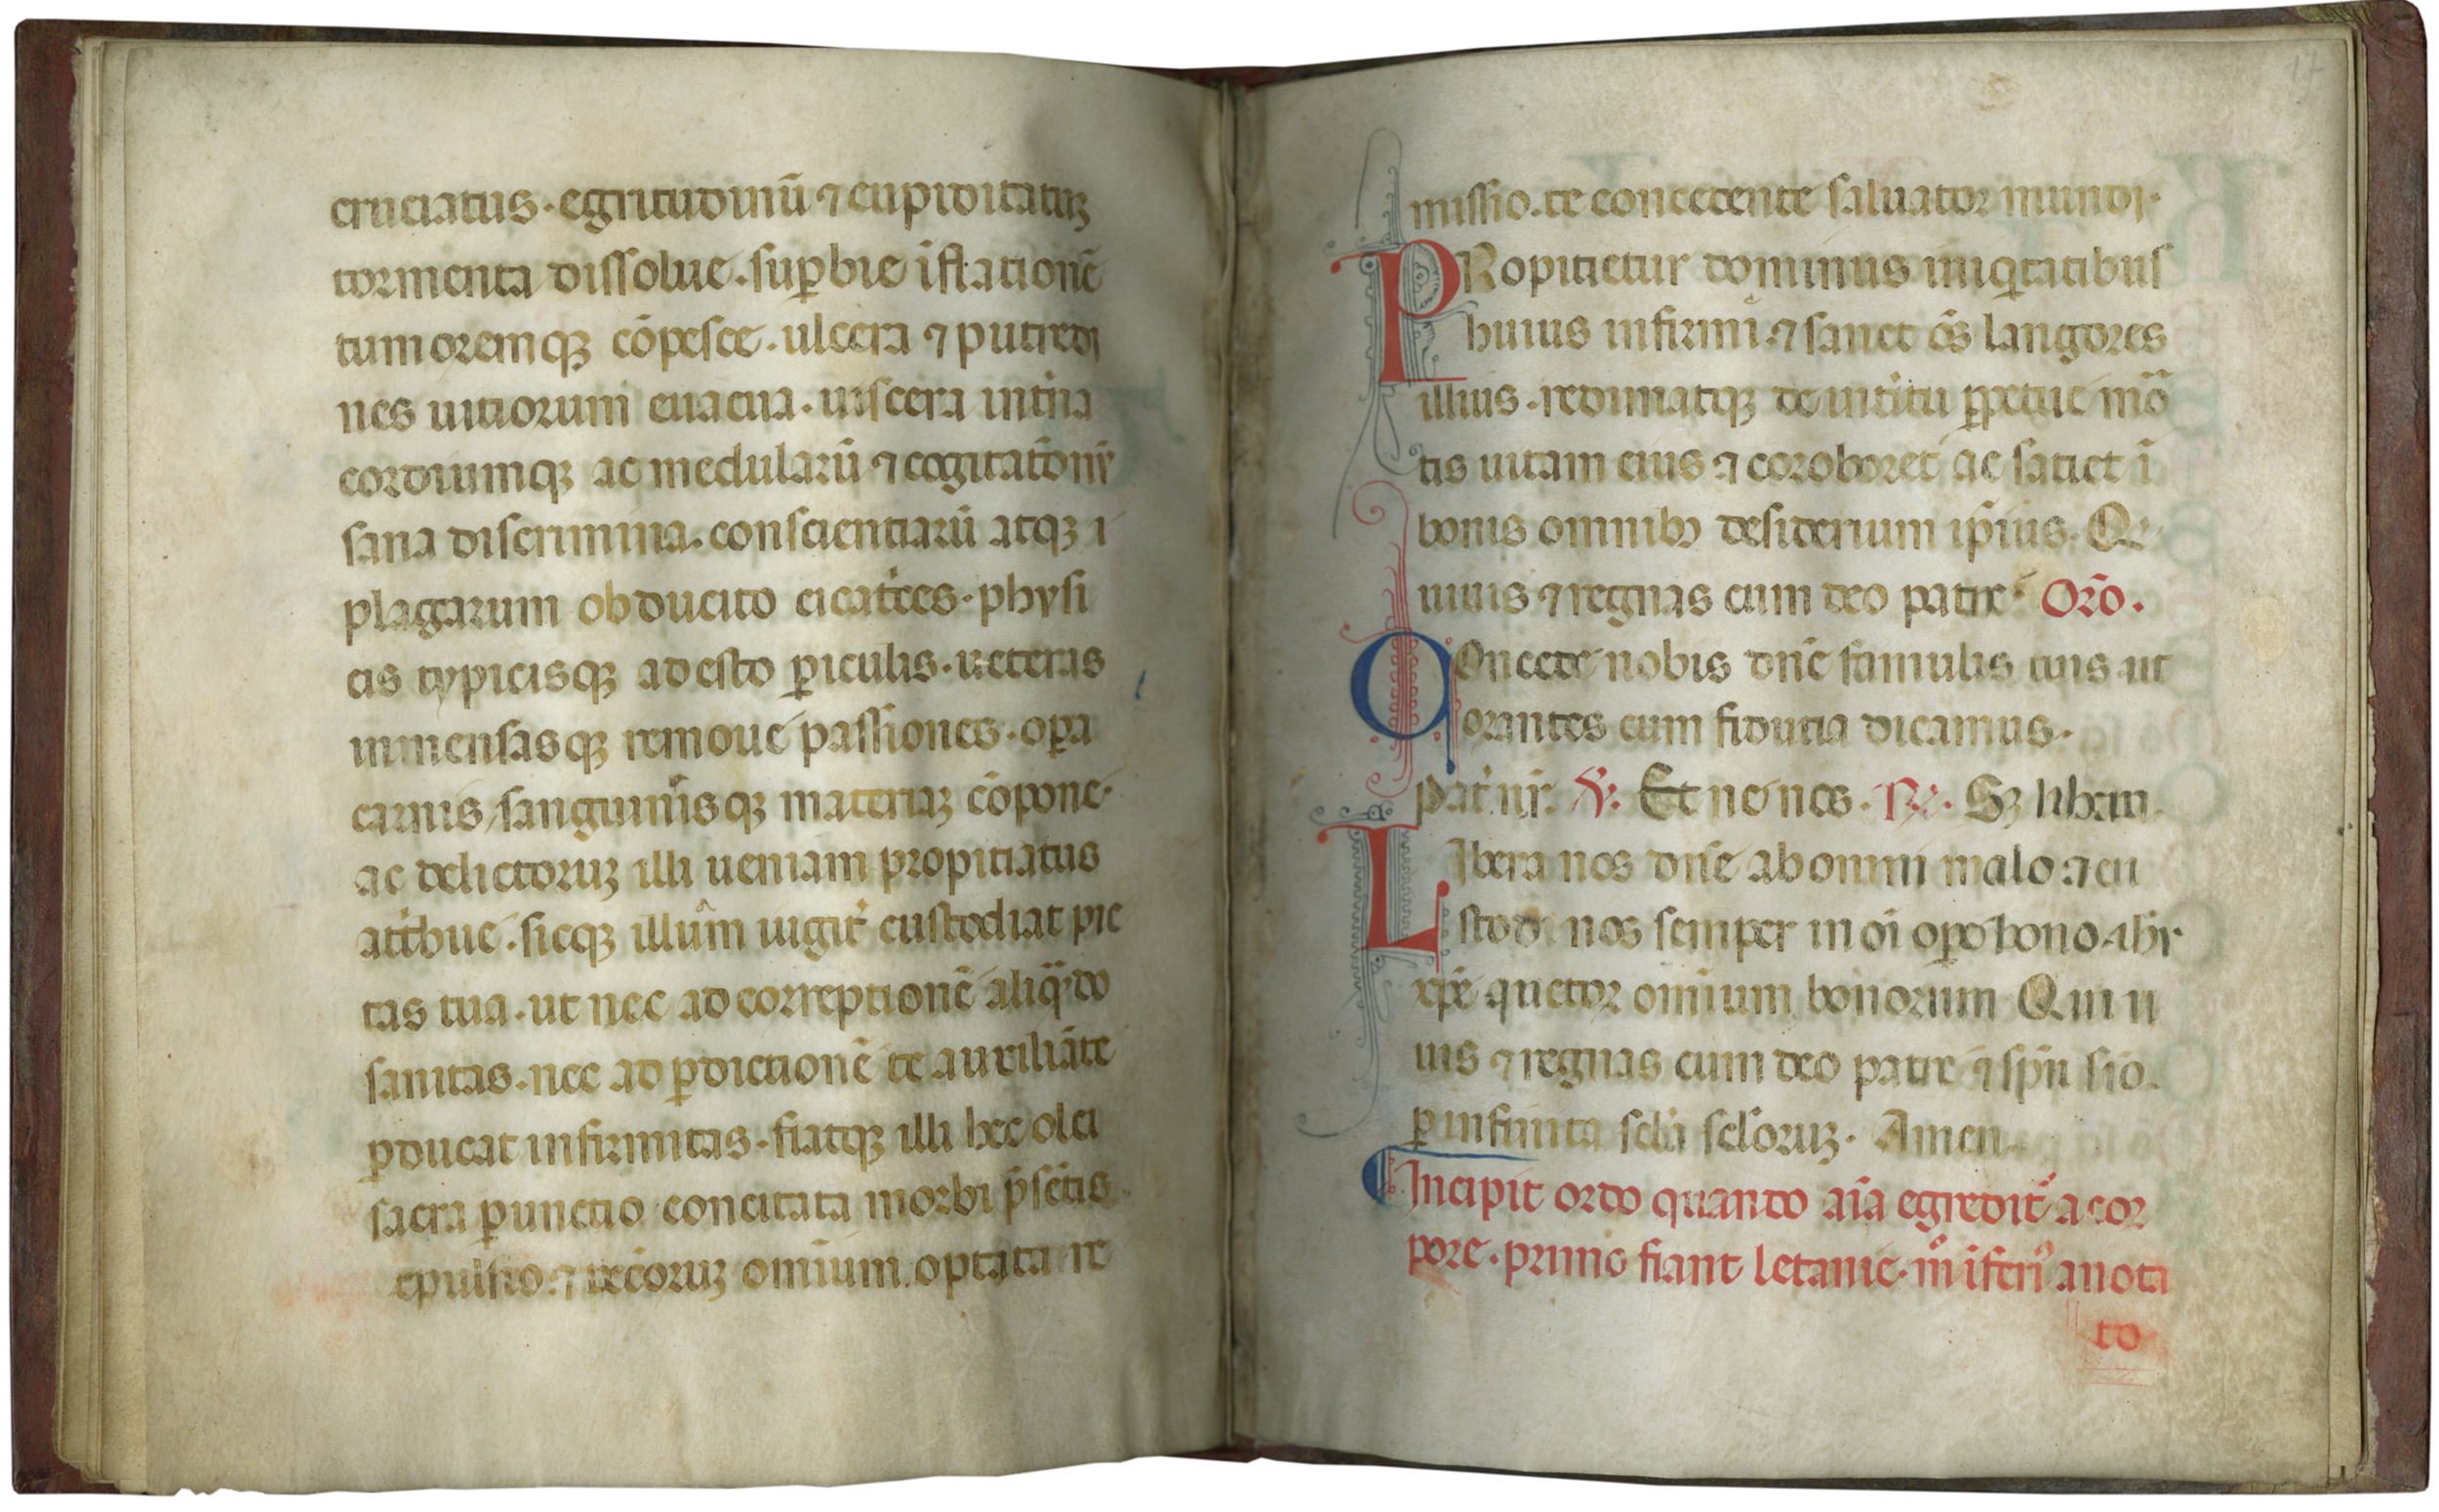 cruciatus. egritudinū ⁊ cupiditatuꝫ
tormenta dissolue. suꝑbie iflationē
tumoremqꝫ cōpesce. ulcera ⁊ putredi
nes uitiorum euacua. uiscera int͛na
cordiumqꝫ ac medularū ⁊ cogitatōnū
sana discrimina. conscientiarū atqꝫ
plagarum obducito cicat͛ces. physi
cis typicisqꝫ adesto ꝑiculis. ueteras
inmensasqꝫ remoue passiones. oꝑa
carnis sanguinisqꝫ materiaꝫ cōpone.
ac delictoruꝫ illi ueniam propitiatus
at͛bue. sicqꝫ illum iugit͛ custodiat pie
tas tua. ut nec ad correptionē aliqᷓdo
sanitas. nec ad ꝑdictionē te auxiliāte
ꝑducat infirmitas. fiatqꝫ illi hec olei
sacra ꝑunctio concitata morbi p̄sētis
epulsio. ⁊ optata re
17
missio. te concedente saluator mundi.
PRopitietur dominus iniqͥtatibus
huius infirmi. ⁊ sanet ōs langores
illius. redimatqꝫ de int͛itu ꝑpetue mō
tis uitam eius ⁊ coroboret ac satiet ī
bonis omnibꝫ desiderium ip̄ius. Qi
uiuis ⁊ regnas cum deo patre. Orō.
Concede nobis dn̄e famulis tuis ut
orantes cum fiducia dicamus.
pat͛ nr̄. ℣. Et ne nos. ℟. Sꝫ libera.
Libera nos dn̄e ab omni malo. ⁊ cu
stodi nos semper in oī oꝑe bono ihu
xp̄e auctor omium bonorum Qui ui
uis ⁊ regnas cum deo patre ⁊ spū sto.
ꝑ infinita scl̄a scl̄oruꝫ. Amen.
Incipit ordo quando aīa egredit͛ a cor
pore. primo fiant letanie. anota
to